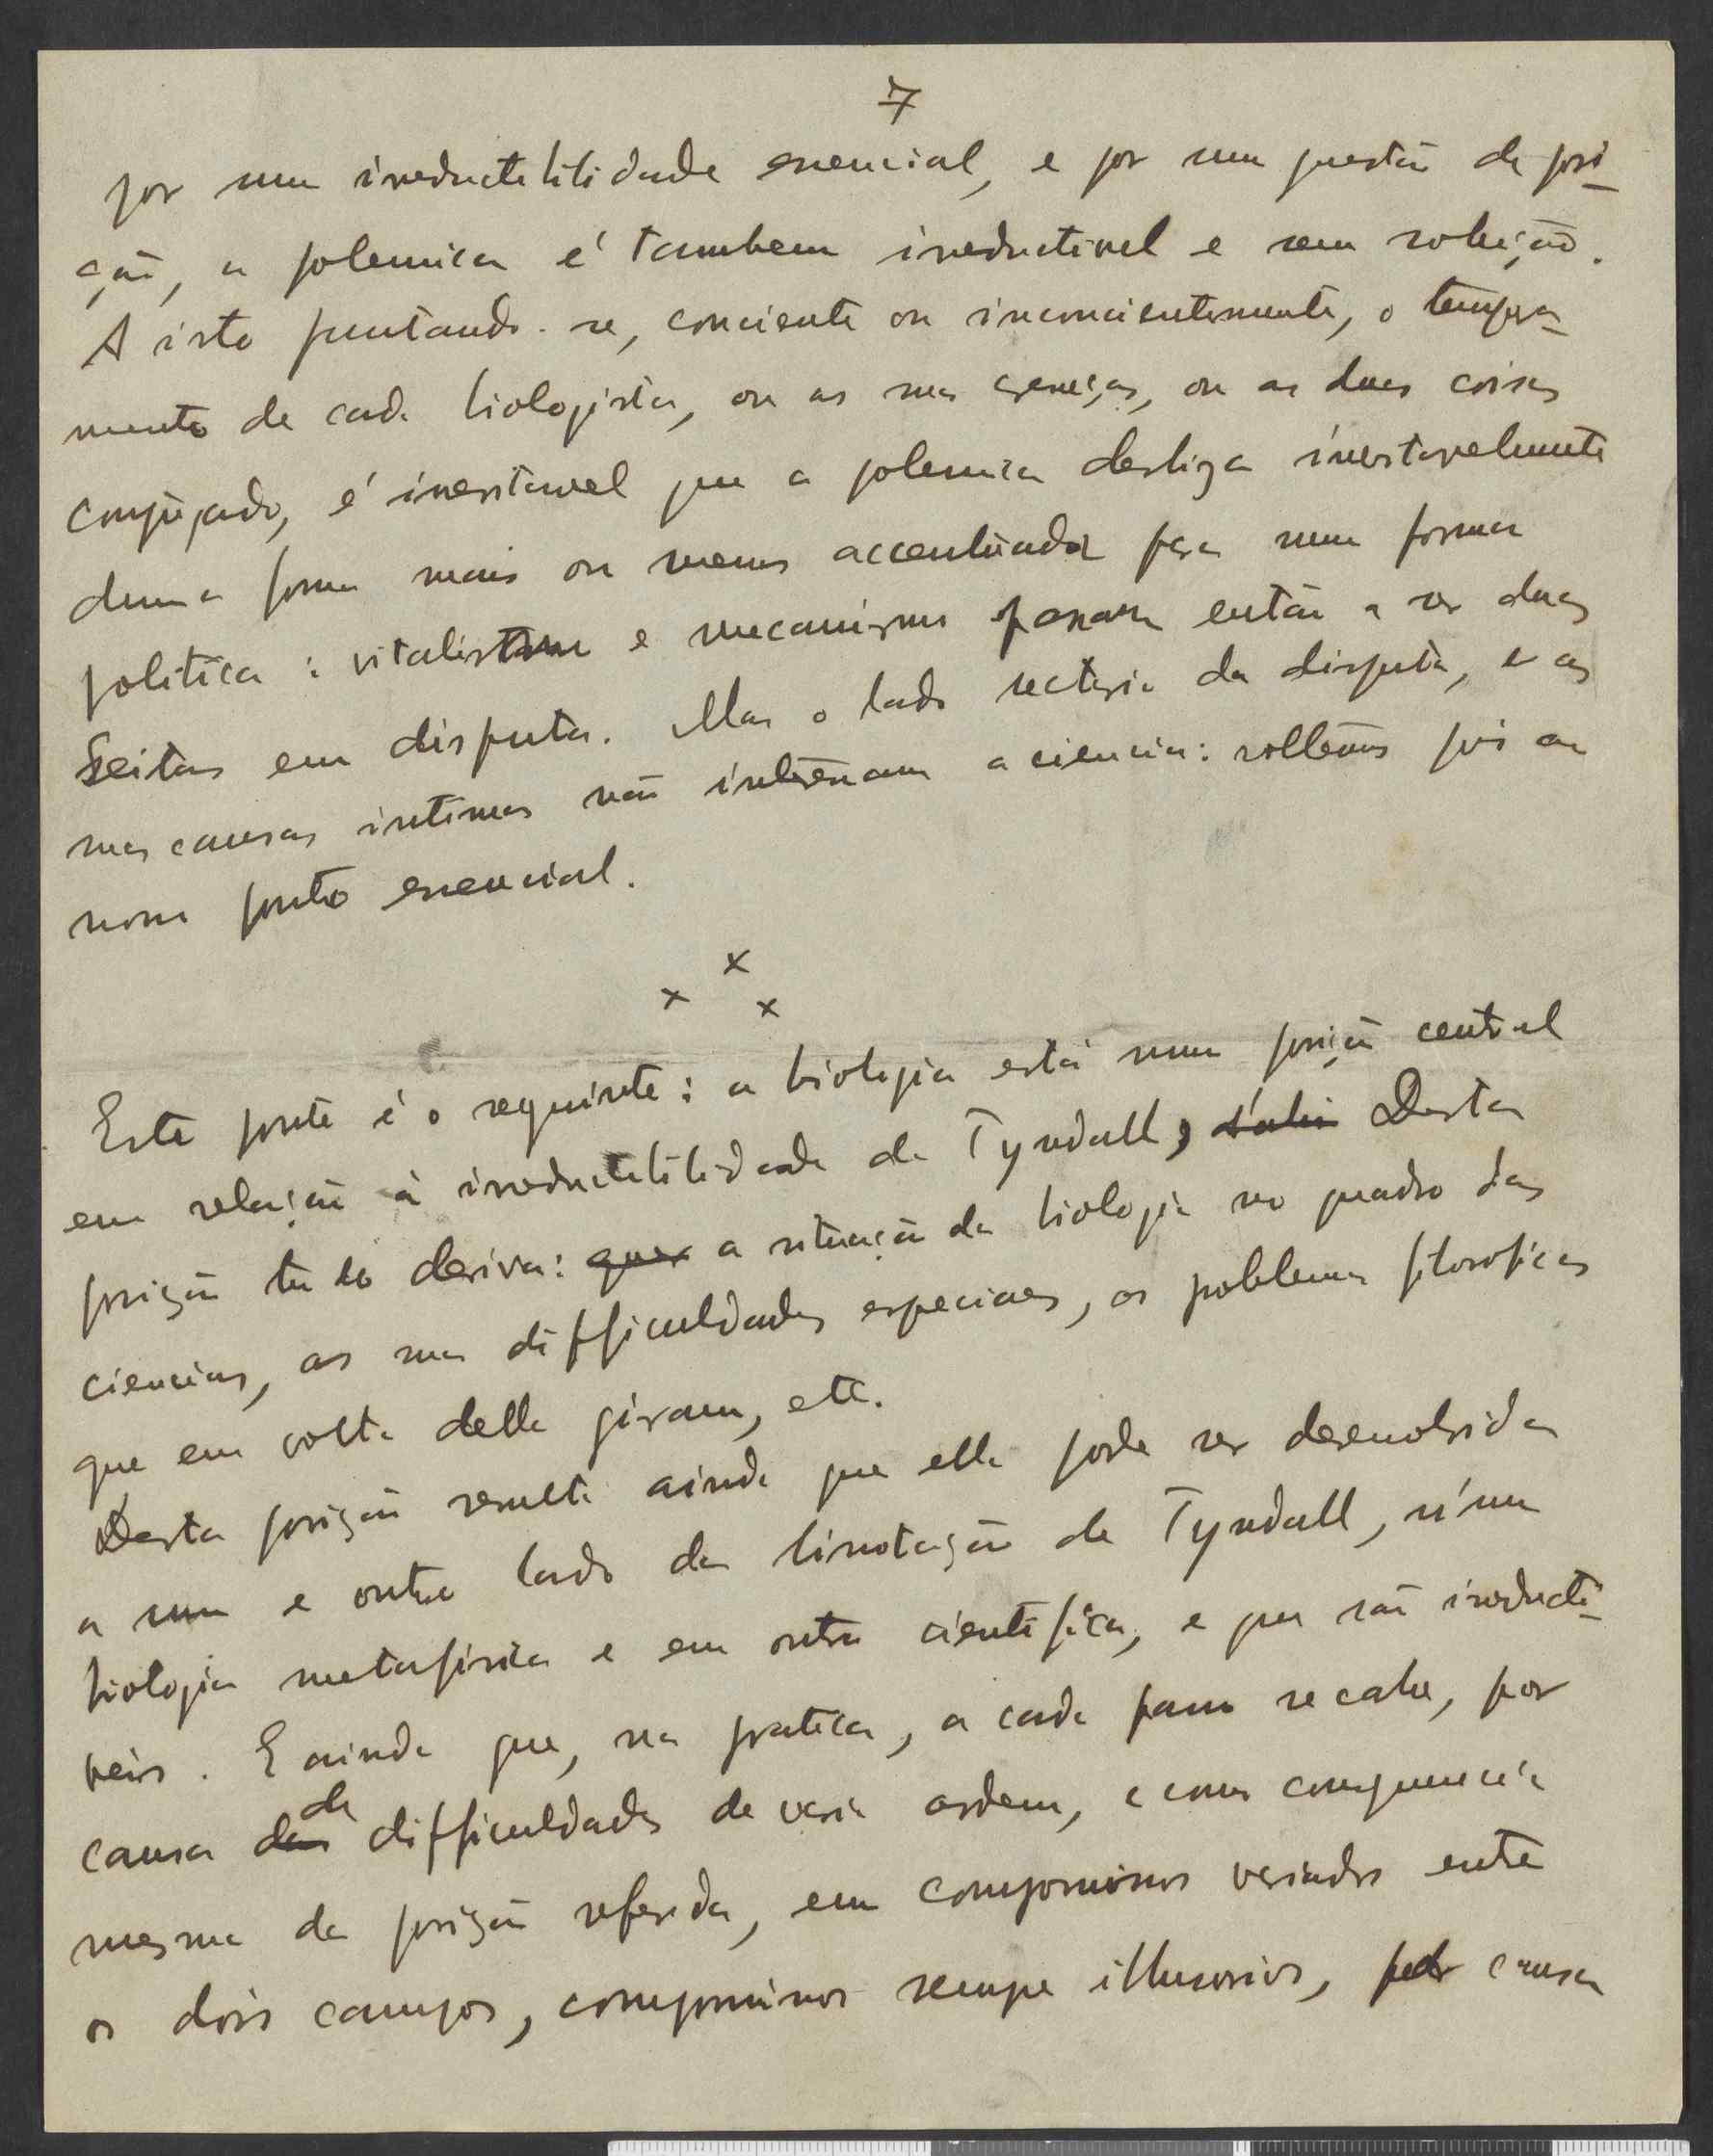 7
por uma irreductibilidade essencial, e por uma questão de posi-
ção, a polemica é tambem irreductivel e sem solução.
A isto juntando-se, conciente ou inconcientemente, o tempera-
mento de cada biologista, ou as suas crenças, ou as duas coisas
conjugadas, é inevitavel que a polemica desliza inevitavelmente
duma forma mais ou menos accentuada para uma forma
politica: vitalismo e mecanismo passam então a ser duas
Seitas em disputa. Mas o lado sectario da disputa, e as
suas causas intimas não interessam a ciencia: voltemos pois ao
nosso ponto essencial.
x
x x
Este ponto é o seguinte: a biologia está numa posição central
em relação à irreductibilidade de Tyndall, Desta
posição tudo deriva: quer a situação da biologia no quadro das
ciencias, as suas difficuldades especiaes, os problemas filosoficos
que em volta della giram, etc.
Desta posição resulta ainda que ella pode ser desenvolvida
a um e outro lado da limitação de Tyndall, n'uma
biologia metafisica e em outra cientifica, e que são irreducti-
veis. E ainda que, na pratica, a cada passo se cahe, por
causa de difficuldades de varia ordem, e como consequencia
mesma da posição referida, em compromissos variados entre
os dois campos, compromissos sempre illusorios, por causa